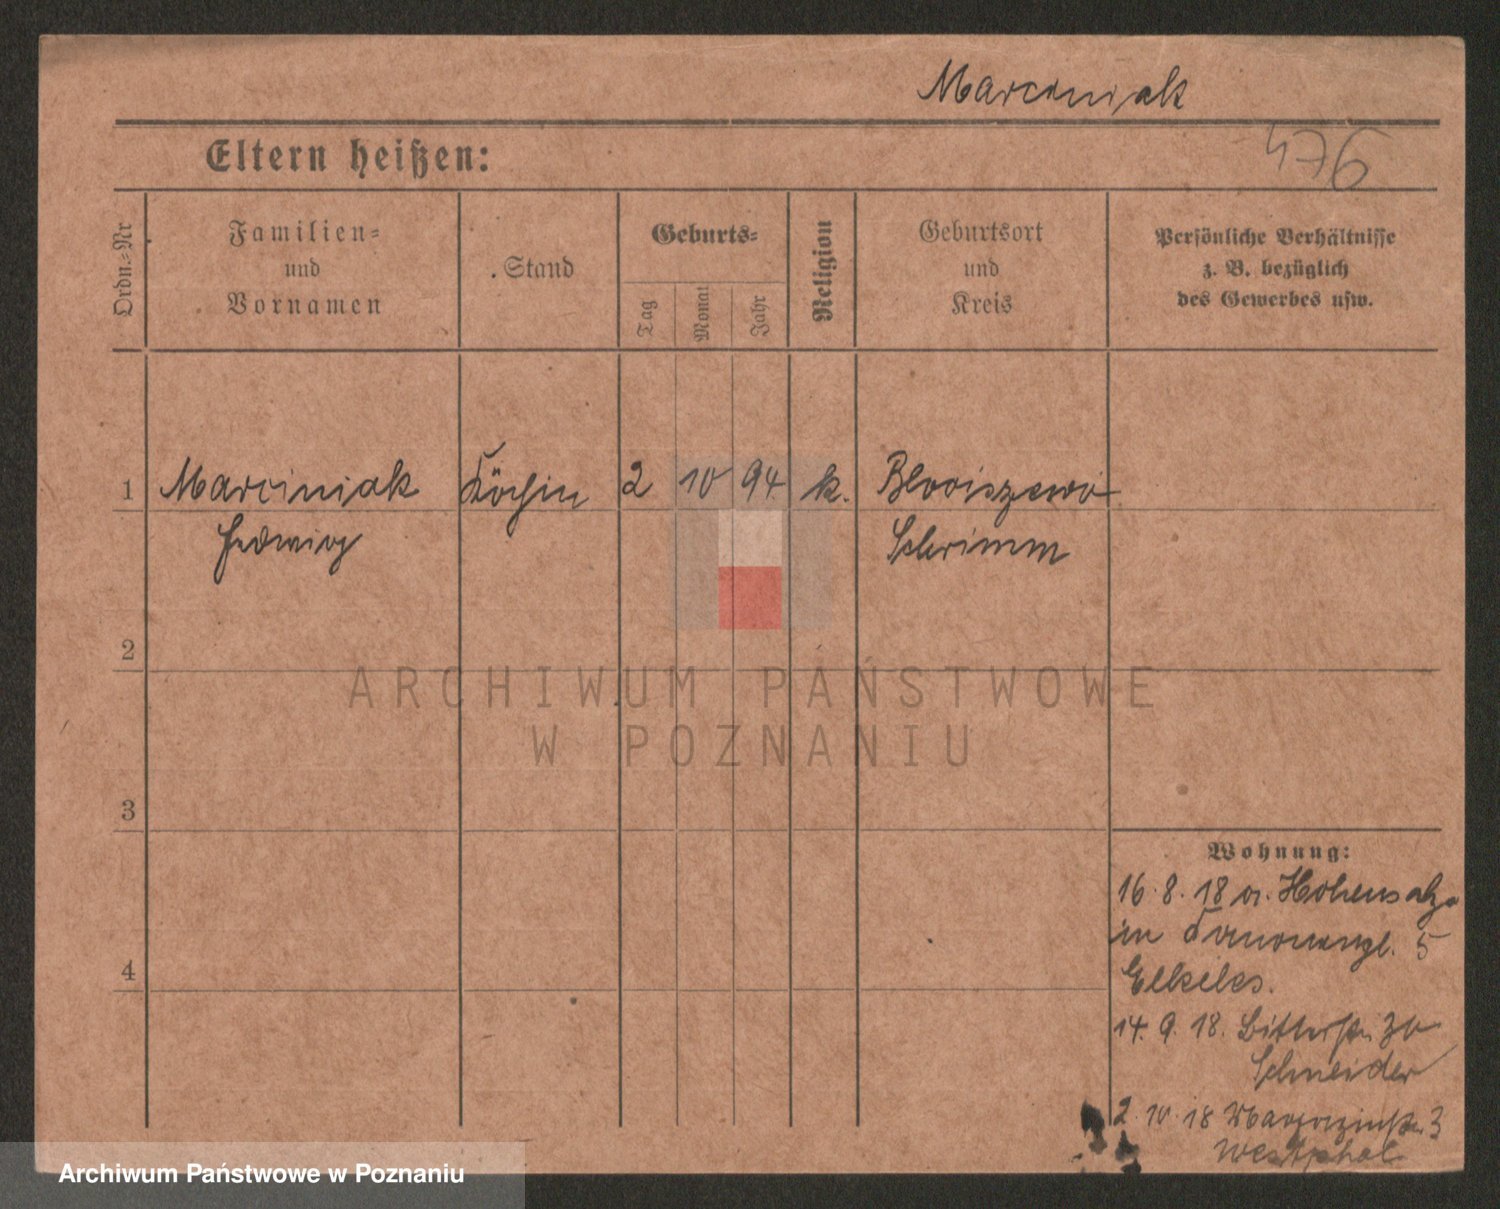 Marciniak
476
Eltern heißen:
Ordn.-Nr
Familien-
und
Vornamen
Stand
Geburts-
Tag
Monat
Jahr
Religion
Geburtsort
und
Kreis
Persönliche Verhältnisse
z. B. bezüglich
des Gewerbes usw.
1 Marciniak Köchin 2 10 94 k.
Hedwig Schrimm
2
ARCHIWUM PAŃSTWOWE
W POZNANIU
3
4
Wohnung:
16.8.18 a. Hohensalza
in 5
Elkeles.
14.9.18. Bitterstr.
Schneider
2.10.18 3
Westphal
Archiwum Państwowe w Poznaniu